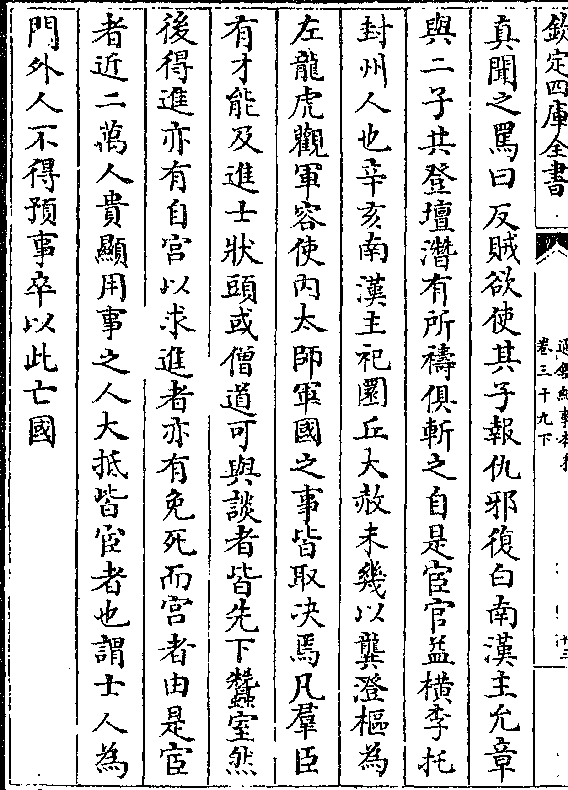 欽定四庫全書
卷三十九下
真聞之罵曰反賊欲使其子報仇邪復白南漢主允章
與二子共登壇濳有所禱俱斬之自是宦官益橫李托
封州人也辛亥南漢主祀圜丘大赦未幾以龔澄樞為
左龍虎觀軍容使內太師軍國之事皆取决焉凡羣臣
有才能及進士狀頭或僧道可與談者皆先下蠶室然
後得進亦有自宮以求進者亦有免死而宮者由是宦
者近二萬人貴顯用事之人大抵皆宦者也謂士人為
門外人不得預事卒以此亡國